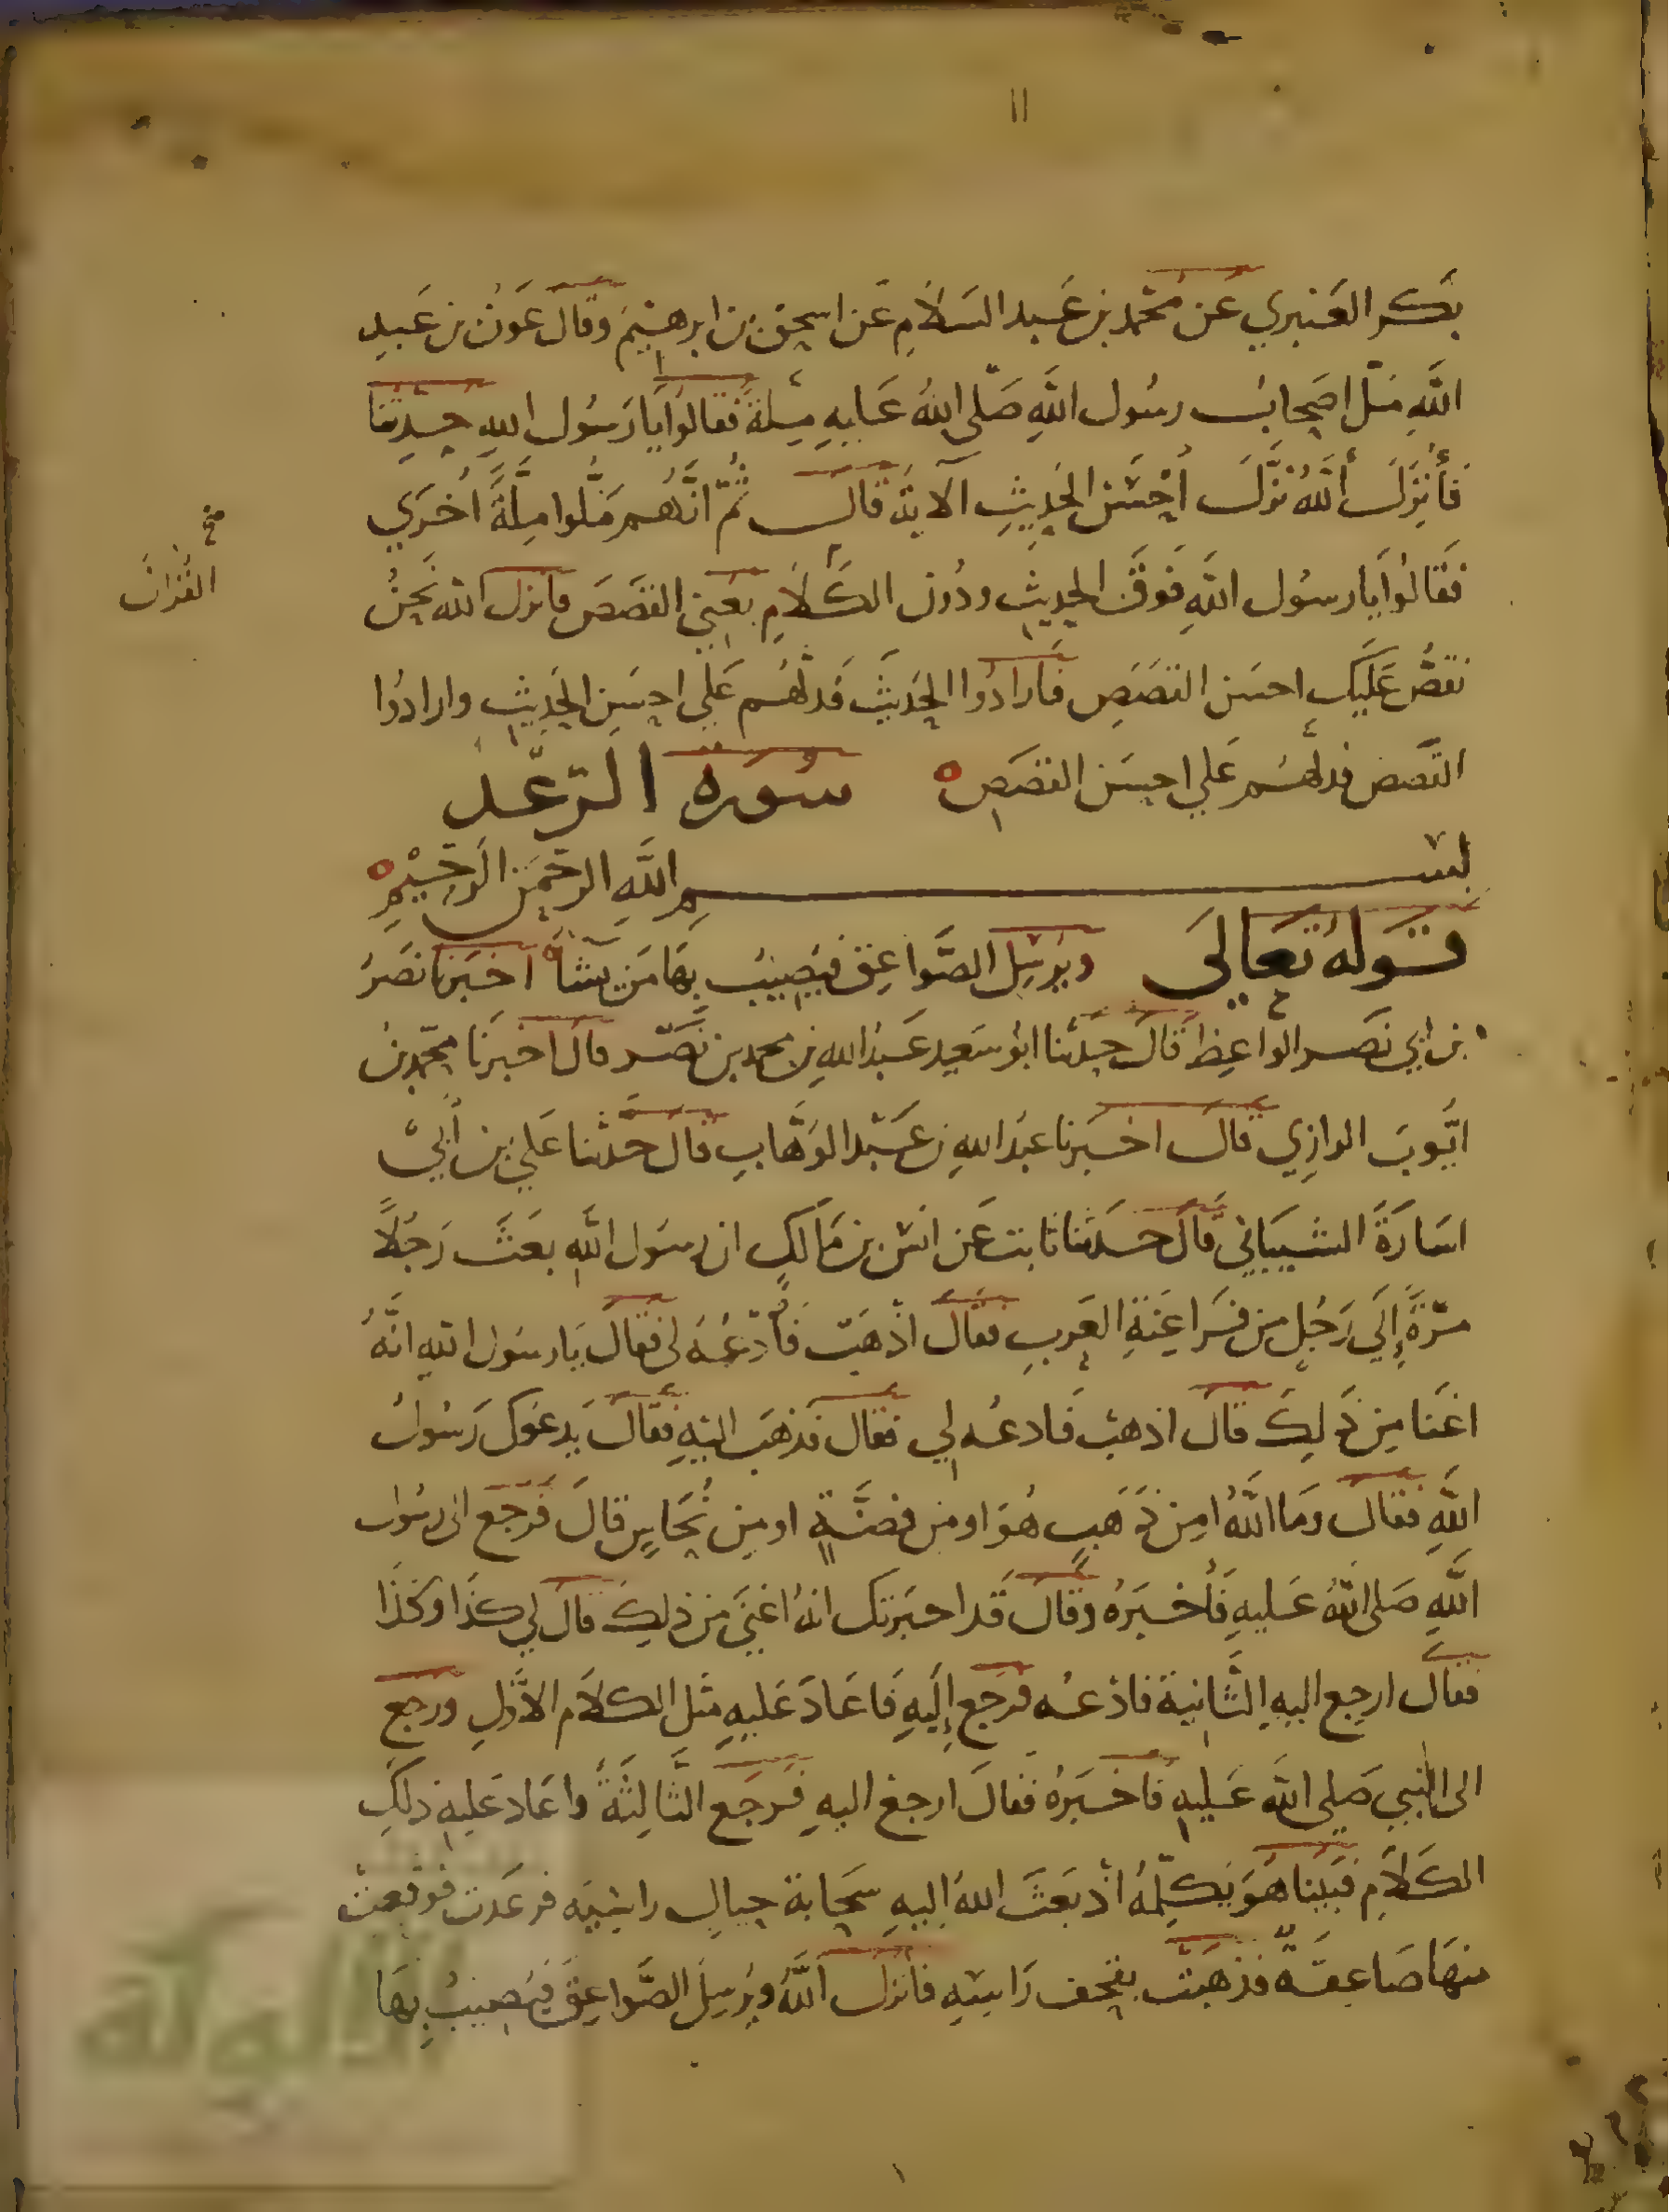 ١١
بكر العنبري عن محمد بن عبد السلام عن اسحق بن ابرهيم وقال عون بن عبد
الله مل اصحاب رسول الله صلى الله عليه ملة فقالوا يا رسول الله حدثنا
فأنزل الله نزل أحسن الحديث الآية قال ثم انهم ملوا ملة أخرى
فقالوا يا رسول الله فوق الحديث ودون الكلام يعني القصص فانزل الله نحن
القرآن
نقص عليك احسن القصص فارادوا الحديث فدلهم على احسن الحديث وارادوا
القصص فدلهم على احسن القصص ه سورة الرعد
بسم الله الرحمن الرحيم ه
قوله تعالى ويرسل الصواعق فيصيب بها من يشأ ه اخبرنا نصر
بن ابي نصر الواعظ قال حدثنا ابو سعيد عبد الله بن محمد بن نصر قال اخبرنا محمد بن
ايوب الرازي قال اخبرنا عبد الله بن عبد الوهاب قال حدثنا علي بن أبي
اسارة الشيباني قال حدثنا ثابت عن انس بن مالك ان رسول الله بعث رجلاً
مرّة إلى رجل من فراعنة العرب فقال اذهب فأدعه لي فقال يا رسول الله انه
اعتا من ذلك قال اذهب فادعه لي فقال فذهب اليه فقال يدعوك رسول
الله فقال وما الله أمن ذهب هو او من فضة او من نحاس قال فرجع الى رسول
الله صلى الله عليه فأخبره وقال قد اخبرتك انه اعتى من ذلك قال لي كذا وكذا
فقال ارجع اليه الثانية فادعه فرجع إليه فاعاد عليه مثل الكلام الاول ورجع
الى النبي صلى الله عليه فاخبره فقال ارجع اليه فرجع الثالثة واعاد عليه ذلك
الكلام فبينا هو يكلمه اذ بعث الله اليه سحابة حيال راسه فرعدت فوقعت
منها صاعقة فذهبت بقحف راسه فانزل الله ويرسل الصواعق فيصيب بها
الألوكة